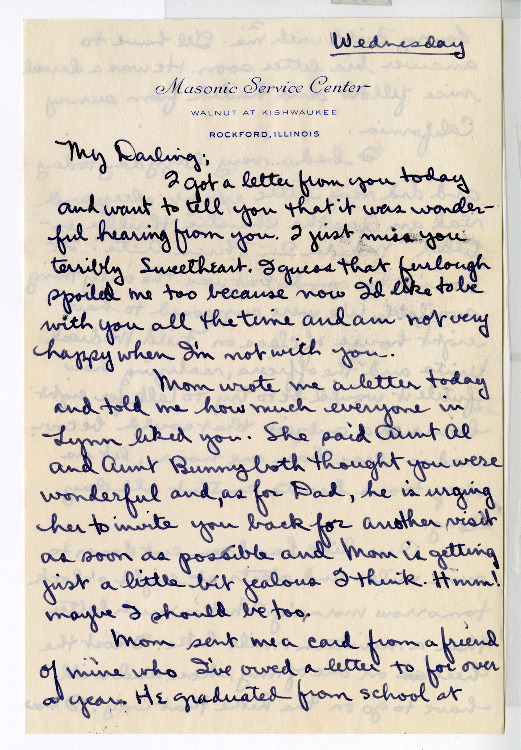 Wednesday
Masonic Service Center
WALNUT AT KISHWAUKEE
ROCKFORD, ILLINOIS
My Darling;
I got a letter from you today
and want to tell you that it was wonder-
ful hearing from you. I just miss you
terribly Sweetheart. I guess that furlough
spoiled me too because now I'd like to be
with you all the time and am not very
happy when I'm not with you.
Mom wrote me a letter today
and told me how much everyone in
Lynn liked you. She said Aunt Al
and Aunt Bunny both thought you were
wonderful and, as for Dad, he is urging
her to invite you back for another visit
as soon as possible and Mom is getting
just a little bit jealous I think. Hmm!
maybe I should be too.
Mom sent me a card from a friend
of mine who I've owed a letter to for over
a year. He graduated from school at